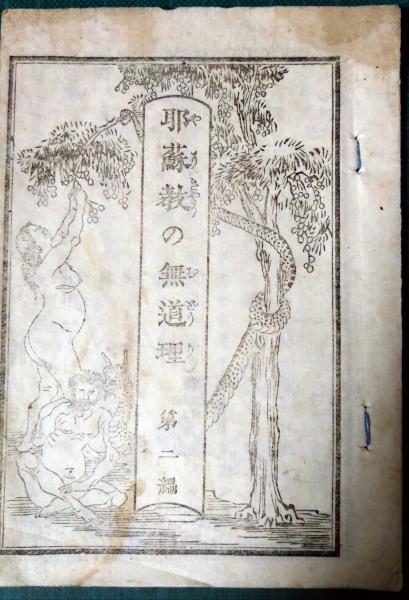 耶蘇教の無道理 第二編